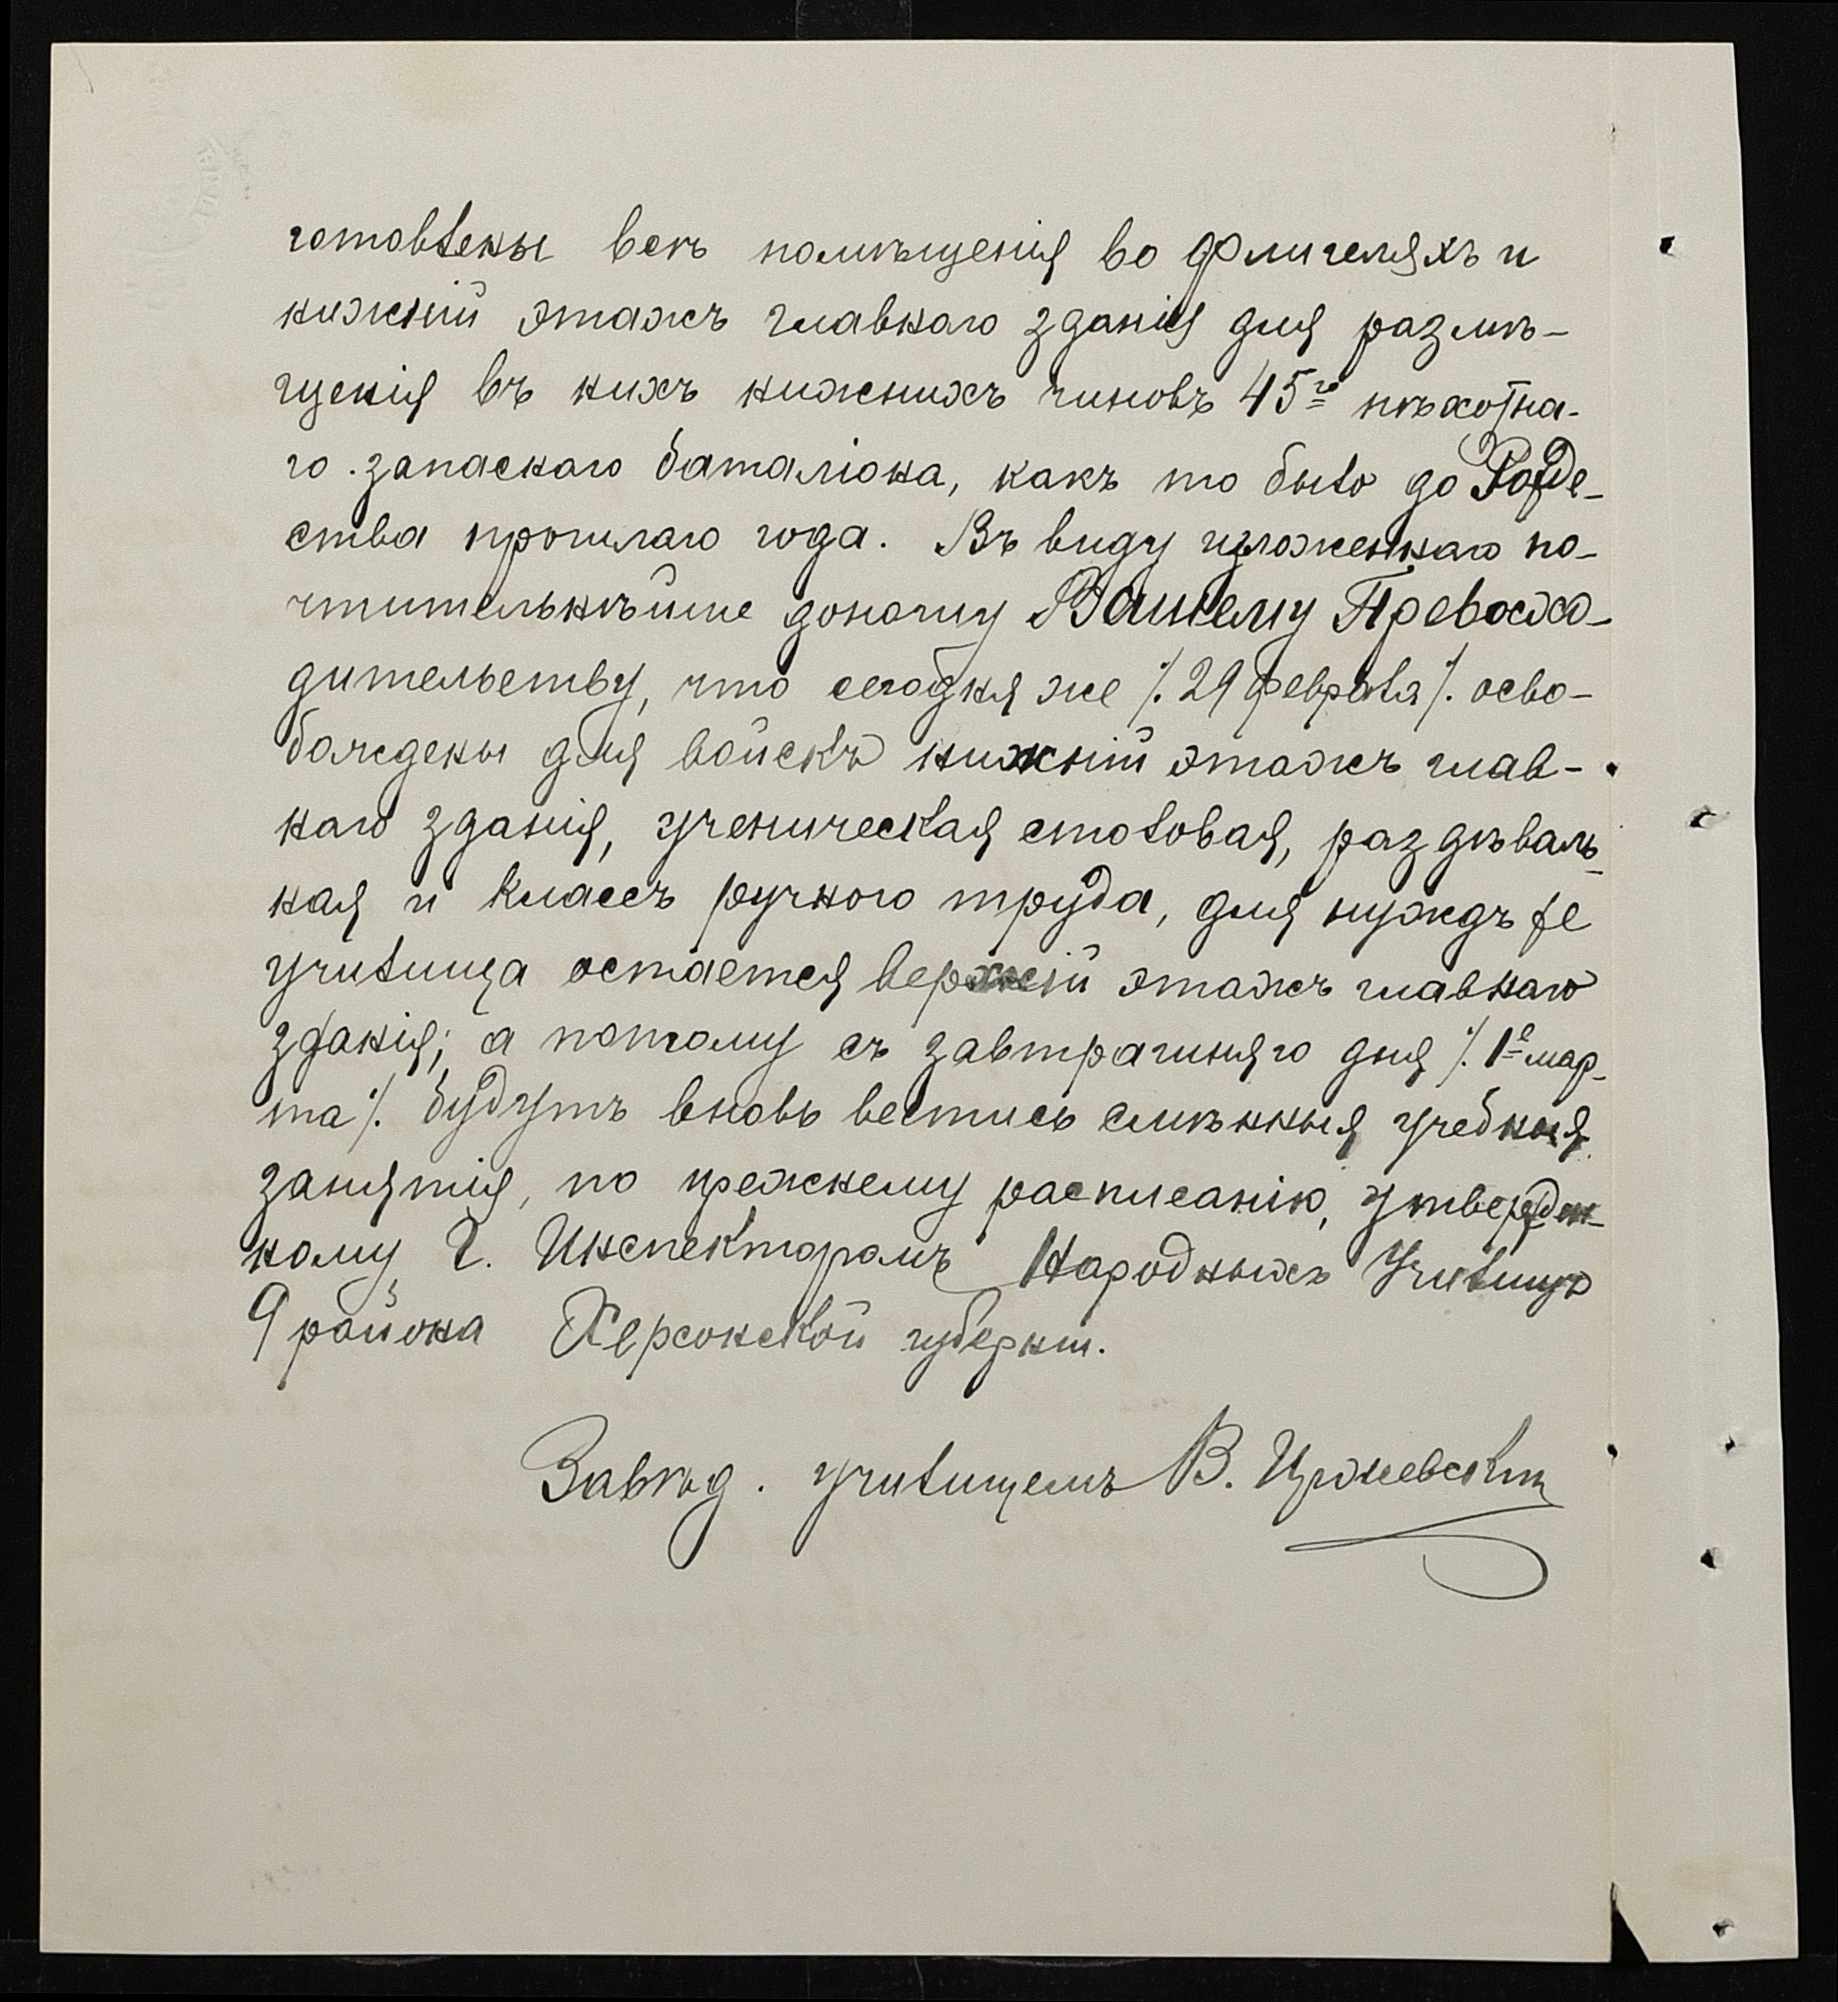 готовлены всѣ помѣщенія во флигеляхъ и
нижній этажъ главнаго зданія для размѣ-
щенія въ нихъ нижнихъ чиновъ 45го пѣхотна-
го запаснаго баталіона, какъ то было до Рожде-
ства прошлаго года. Въ виду изложеннаго по-
чтительнѣйше доношу Вашему Превосхо-
дительству, что сегодня же /. 29 февраля /. осво-
бождены для войскъ нижній этажъ глав-
наго зданія, ученическая столовая, раздѣваль-
ная и классъ ручного труда, для нуждъ же
училища остается верхній этажъ главнаго
зданія; а потому съ завтрашняго дня /. 1е мар-
та /. будутъ вновь вестись смѣнныя учебныя
занятія, по прежнему расписанію, утвержден-
ному Г. Инспекторомъ Народныхъ Училищъ
9 района Херсонской губерніи.
Завѣд. училищемъ В.